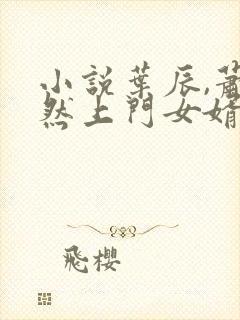 小說葉辰,蕭
然上門女婿
飛櫻